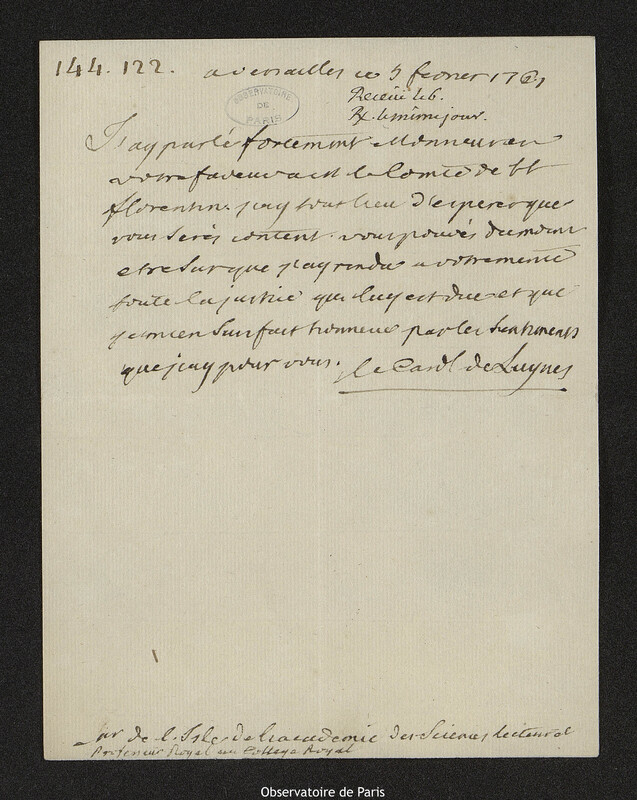 144. 122. a versailles ce 5 fevrier 1761
Receüe le 6.
Rx. le même jour.
OBSERVATOIRE
DE
PARIS
J'ay parlé fortement Monsieur en
votre faveur a M le Comte de St
florentin. j'ay tout lieu d'esperer que
vous serés content. vous pouvés du moins
etre sur que j'ay rendu a votre merite
toute la justice qui luy est due et que
je m'en suis fait honneur par les sentiments
que j'ay pour vous. le Card. de Luynes
Mr de l'Isle de l'academie des Sciences lecteur et
Professeur Royal au College Royal
Observatoire de Paris